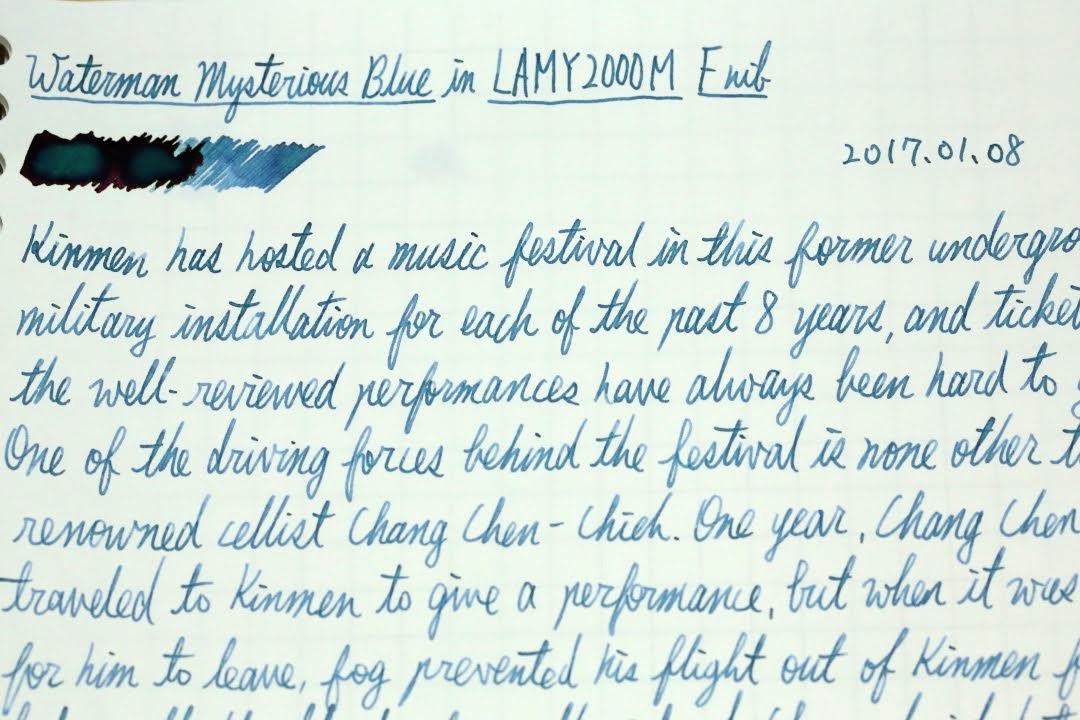 Waterman Mysterious Blue in LAMY2000M Fnib
2017.01.08
Kinmen has hosted a music festival in this former undergro
military installation for each of the past 8 years, and ticket
the well-reviewed performances have always been hard to
One of the driving forces behind the festival is none other t
renowned cellist Chang Chen-Chieh. One year, Chang Chen
traveled to Kinmen to give a performance, but when it was
for him to leave, fog prevented his flight out of Kinmen f